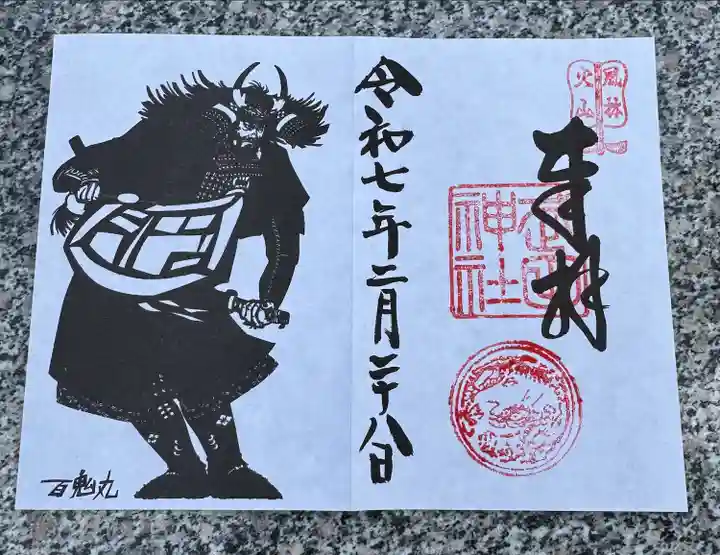 風林
火山
奉拝
武田
神社
令和七年二月二十八日
百鬼丸